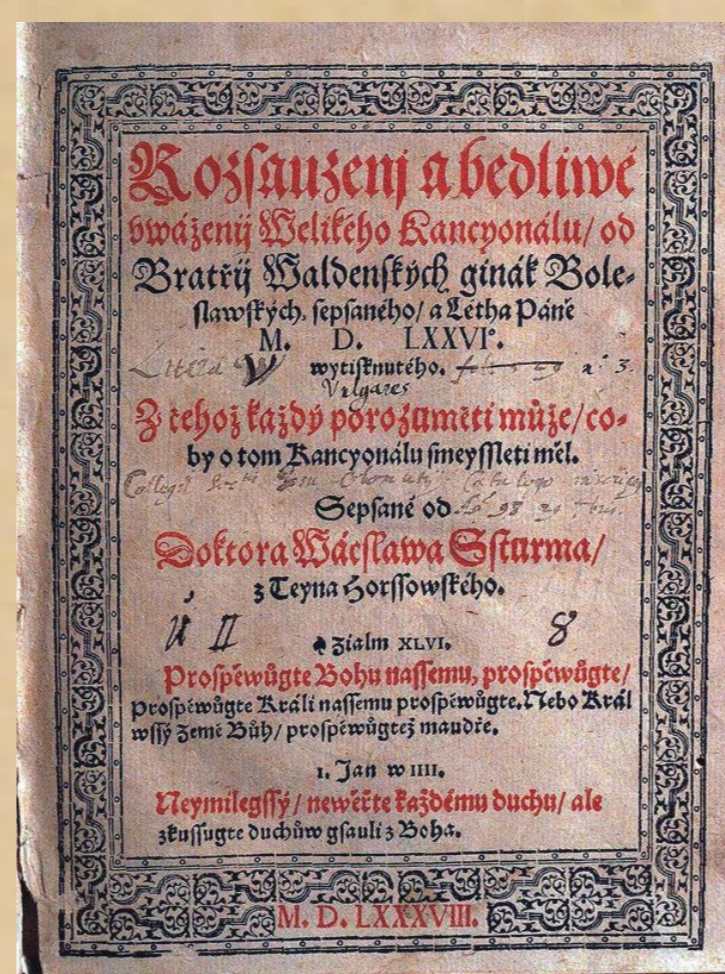 Rozsauzenj a bedliwé
vwáženij Welikého Kancyonálu/ od
Bratřij Waldenských ginák Bole-
slawských, sepsaného/ a Létha Páně
M. D. LXXVIº.
wytisknutého.
Vulgares
Z čehož každý porozuměti může/ co-
by o tom Kancyonálu smeyssleti měl.
Sepsané od
Doktora Wácslawa Ssturma/
z Teyna Horssowského.
II 8
Zialm XLVI.
Prospěwůgte Bohu nassemu, prospěwůgte/
Prospěwůgte Králi nassemu prospěwůgte. Nebo Král
wssý Země Bůh/ prospěwůgtež maudře.
1. Jan w IIII.
Neymilegssý/ newěřte každému duchu/ ale
zkussugte duchůw gsauli z Boha.
M. D. LXXXVIII.